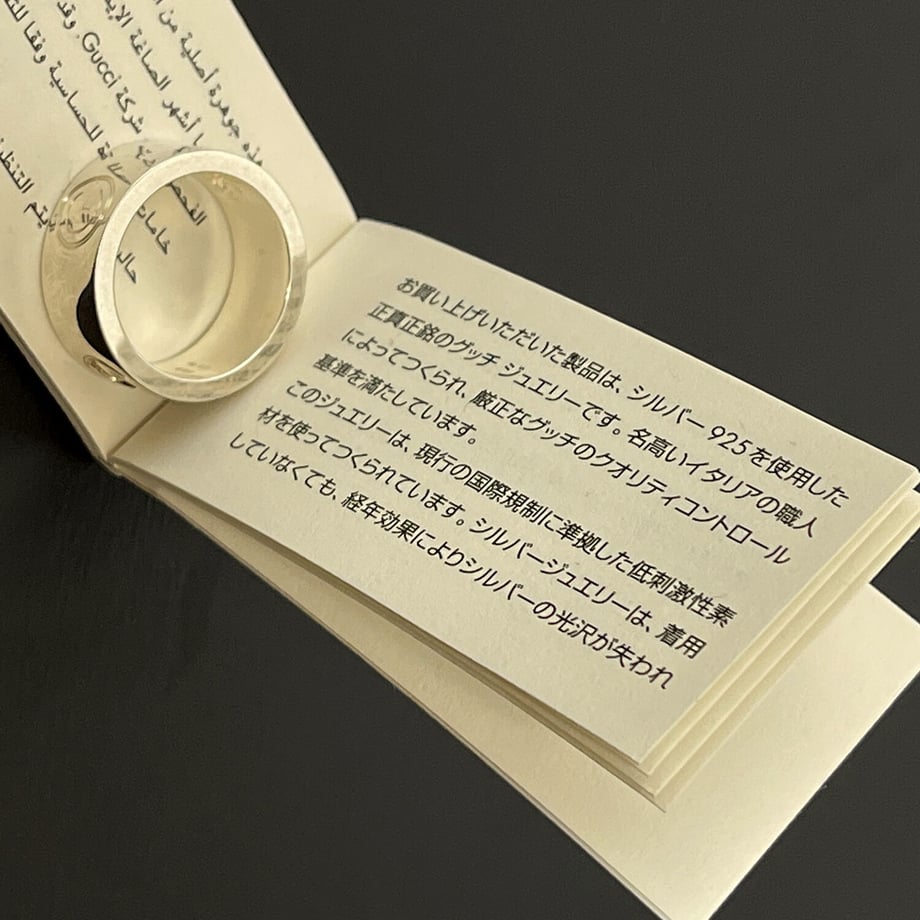 هذه جوهرة أصلية من
أشهر الصاغة الإيد
شركة Gucci. وقد
للحساسية وفقا للق
الفحص
خامات
حال
يتم التنظيف
お買い上げいただいた製品は、シルバー 925を使用した
正真正銘のグッチ ジュエリーです。名高いイタリアの職人
によってつくられ、厳正なグッチのクオリティコントロール
基準を満たしています。
このジュエリーは、現行の国際規制に準拠した低刺激性素
材を使ってつくられています。シルバージュエリーは、着用
していなくても、経年効果によりシルバーの光沢が失われ